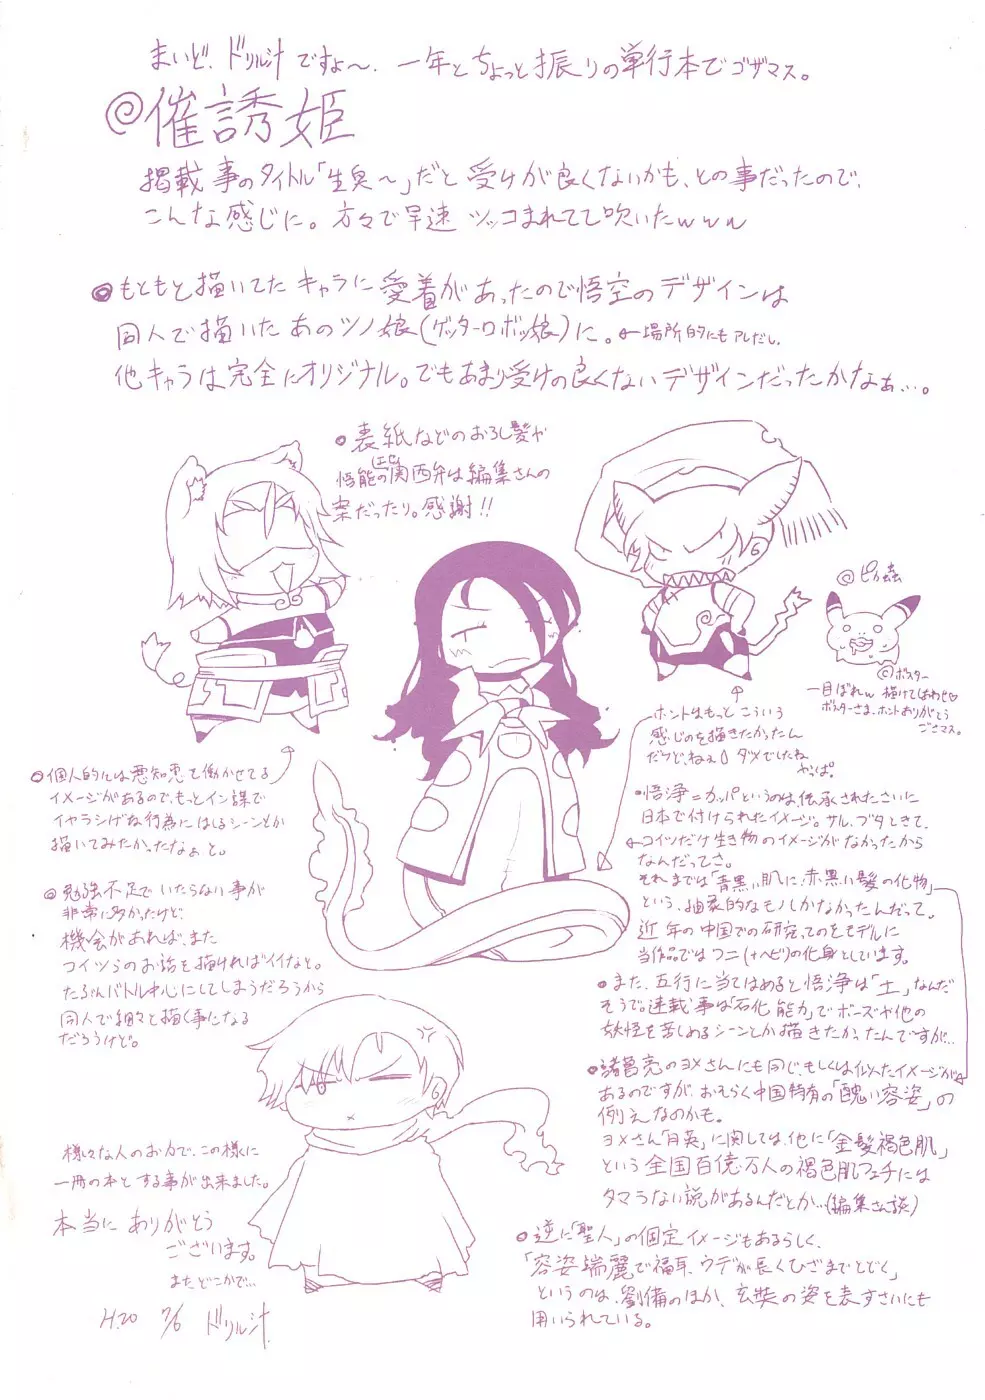 まいど、ドリル汁ですよ〜、一年とちょっと振りの単行本でゴザマス。
@催誘姫
掲載事のタイトル「生臭〜」だと受けが良くないかも、との事だったので、
こんな感じに。方々で早速ツッコまれてて吹いたwww
●もともと描いてたキャラに愛着があったので悟空のデザインは
同人で描いたあのツノ娘(ゲッターロボッ娘)に。←場所的にもアレだし、
他キャラは完全にオリジナル。でもあまり受けの良くないデザインだったかなぁ…。
●表紙などのおろし髪や
悟能の関西弁は編集さんの
案だったり。感謝!!
@ピカ蟲
©ボスター
一目ぼれw 描けてしあわせ♡
ボスターさま、ホントありがとう
ござマス。
ホントはもっとこういう
感じのを描きたかったん
だけど、ねぇ。ダメでしたね
やっぱ。
●個人的には悪知恵を働かせてる
イメージがあるので、もっとイン謀で
イヤラシげな行為にはしるシーンとか
描いてみたかったなぁと。
●悟浄=カッパというのは、伝承されたさいに
日本で付けられたイメージ。サル、ブタときて、
←コイツだけ生き物のイメージがなかったから
なんだってさ。
それまでは「青黒い肌に、赤黒い髪の化物」
という、抽象的なモノしかなかったんだって。
近年の中国での研究、そのをモデルに
当作品ではワニ(+ヘビ)の化身としています。
◎勉強不足でいたらない事が
非常に多かったけど、
機会があれば、また
コイツらのお話を描ければイイなと。
たぶんバトル中心にしてしまうだろうから
同人で細々と描く事になる
だろうけど。
●また、五行に当てはめると悟浄は「土」なんだ
そうで。連載事は「石化能力」でボーズや他の
妖怪を苦しめるシーンとか描きたかったんですが…
●諸葛亮のヨメさんにも同じ、もしくは似たイメージが
あるのですが、おそらく中国特有の「醜い容姿」の
例えなのかも。
ヨメさん「月英」に関しては、他に「金髪褐色肌」
という全国百億万人の褐色肌フェチには
タマラない説があるんだとか…(編集さん談)
●逆に「聖人」の固定イメージもあるらしく、
「容姿端麗で福耳、ウデが長くひざまでとどく」
というのは、劉備のほか、玄奘の姿を表すさいにも
用いられている。
様々な人のお力で、この様に
一冊の本とする事が出来ました。
本当にありがとう
ございます。
またどこかで…
H.20 7/6 ドリル汁